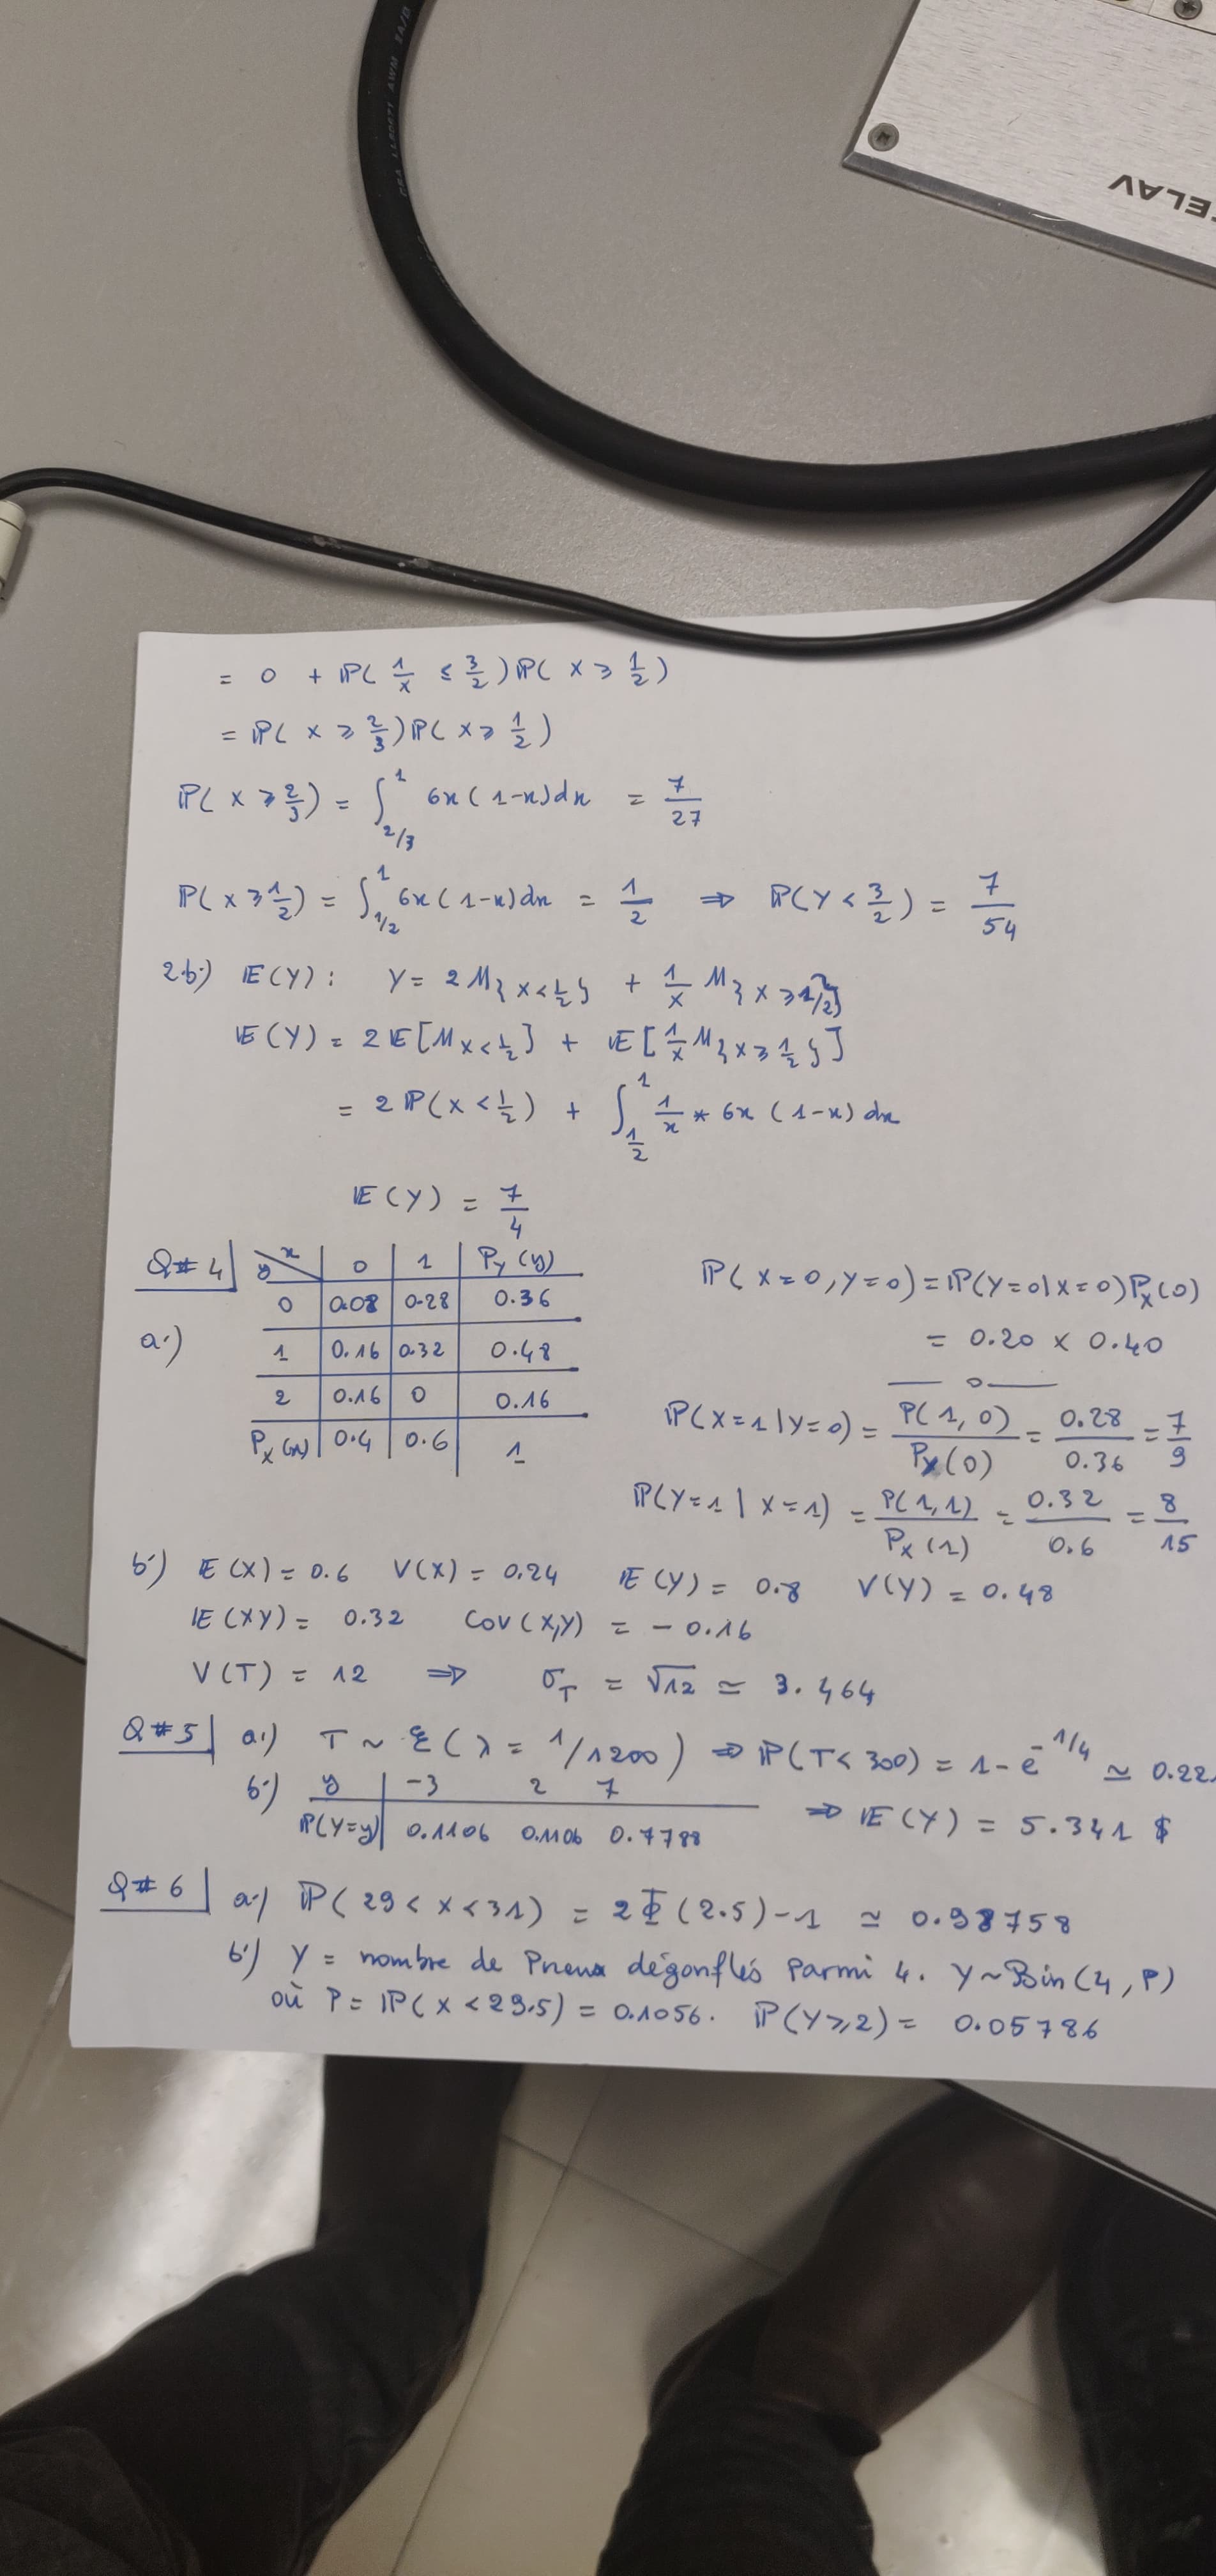 CSA LL80671 AWM
TELAV
= 0 + ℙ( 1/x ≤ 3/2 ) ℙ( X ≥ 1/2 )
= ℙ( X ≥ 2/3 ) ℙ( X ≥ 1/2 )
ℙ( X ≥ 2/3 ) = ∫_{2/3}^{1} 6x (1-x)dx = 7/27
ℙ( X ≥ 1/2 ) = ∫_{1/2}^{1} 6x (1-x)dx = 1/2 ⇒ ℙ(Y < 3/2) = 7/54
2.b.) 𝔼(Y) : Y = 2 𝟙_{X < 1/2} + 1/X 𝟙_{X ≥ 1/2}
𝔼(Y) = 2 𝔼[𝟙_{X < 1/2}] + 𝔼[1/X 𝟙_{X ≥ 1/2}]
= 2 ℙ(X < 1/2) + ∫_{1/2}^{1} 1/x * 6x (1-x) dx
𝔼(Y) = 7/4
Q# 4
a.)
y \ x | 0 | 1 | P_Y(y)
0 | 0.08 | 0.28 | 0.36
1 | 0.16 | 0.32 | 0.48
2 | 0.16 | 0 | 0.16
P_X(x) | 0.4 | 0.6 | 1
ℙ( X=0, Y=0) = ℙ(Y=0|X=0) P_X(0)
= 0.20 x 0.40
—— o ——
ℙ(X=1|Y=0) = P(1,0)/P_Y(0) = 0.28/0.36 = 7/9
ℙ(Y=1 | X=1) = P(1,1)/P_X(1) = 0.32/0.6 = 8/15
b.) 𝔼(X) = 0.6 V(X) = 0.24 𝔼(Y) = 0.8 V(Y) = 0.48
𝔼(XY) = 0.32 Cov(X,Y) = -0.16
V(T) = 12 ⇒ σ_T = √12 ≃ 3.464
Q# 5 a.) T ~ ℰ( λ = 1/1200 ) ⇒ ℙ(T < 300) = 1 - e^{-1/4} ≃ 0.22
b.) y | -3 2 7
ℙ(Y=y) | 0.1106 0.1106 0.7788 ⇒ 𝔼(Y) = 5.341 $
Q# 6 a.) ℙ( 29 < X < 31) = 2Φ(2.5) - 1 ≃ 0.98758
b.) Y = nombre de Pneux dégonflés Parmi 4. Y ~ Bin(4, P)
où P = ℙ( X < 29.5) = 0.1056. ℙ(Y ≥ 2) = 0.05786